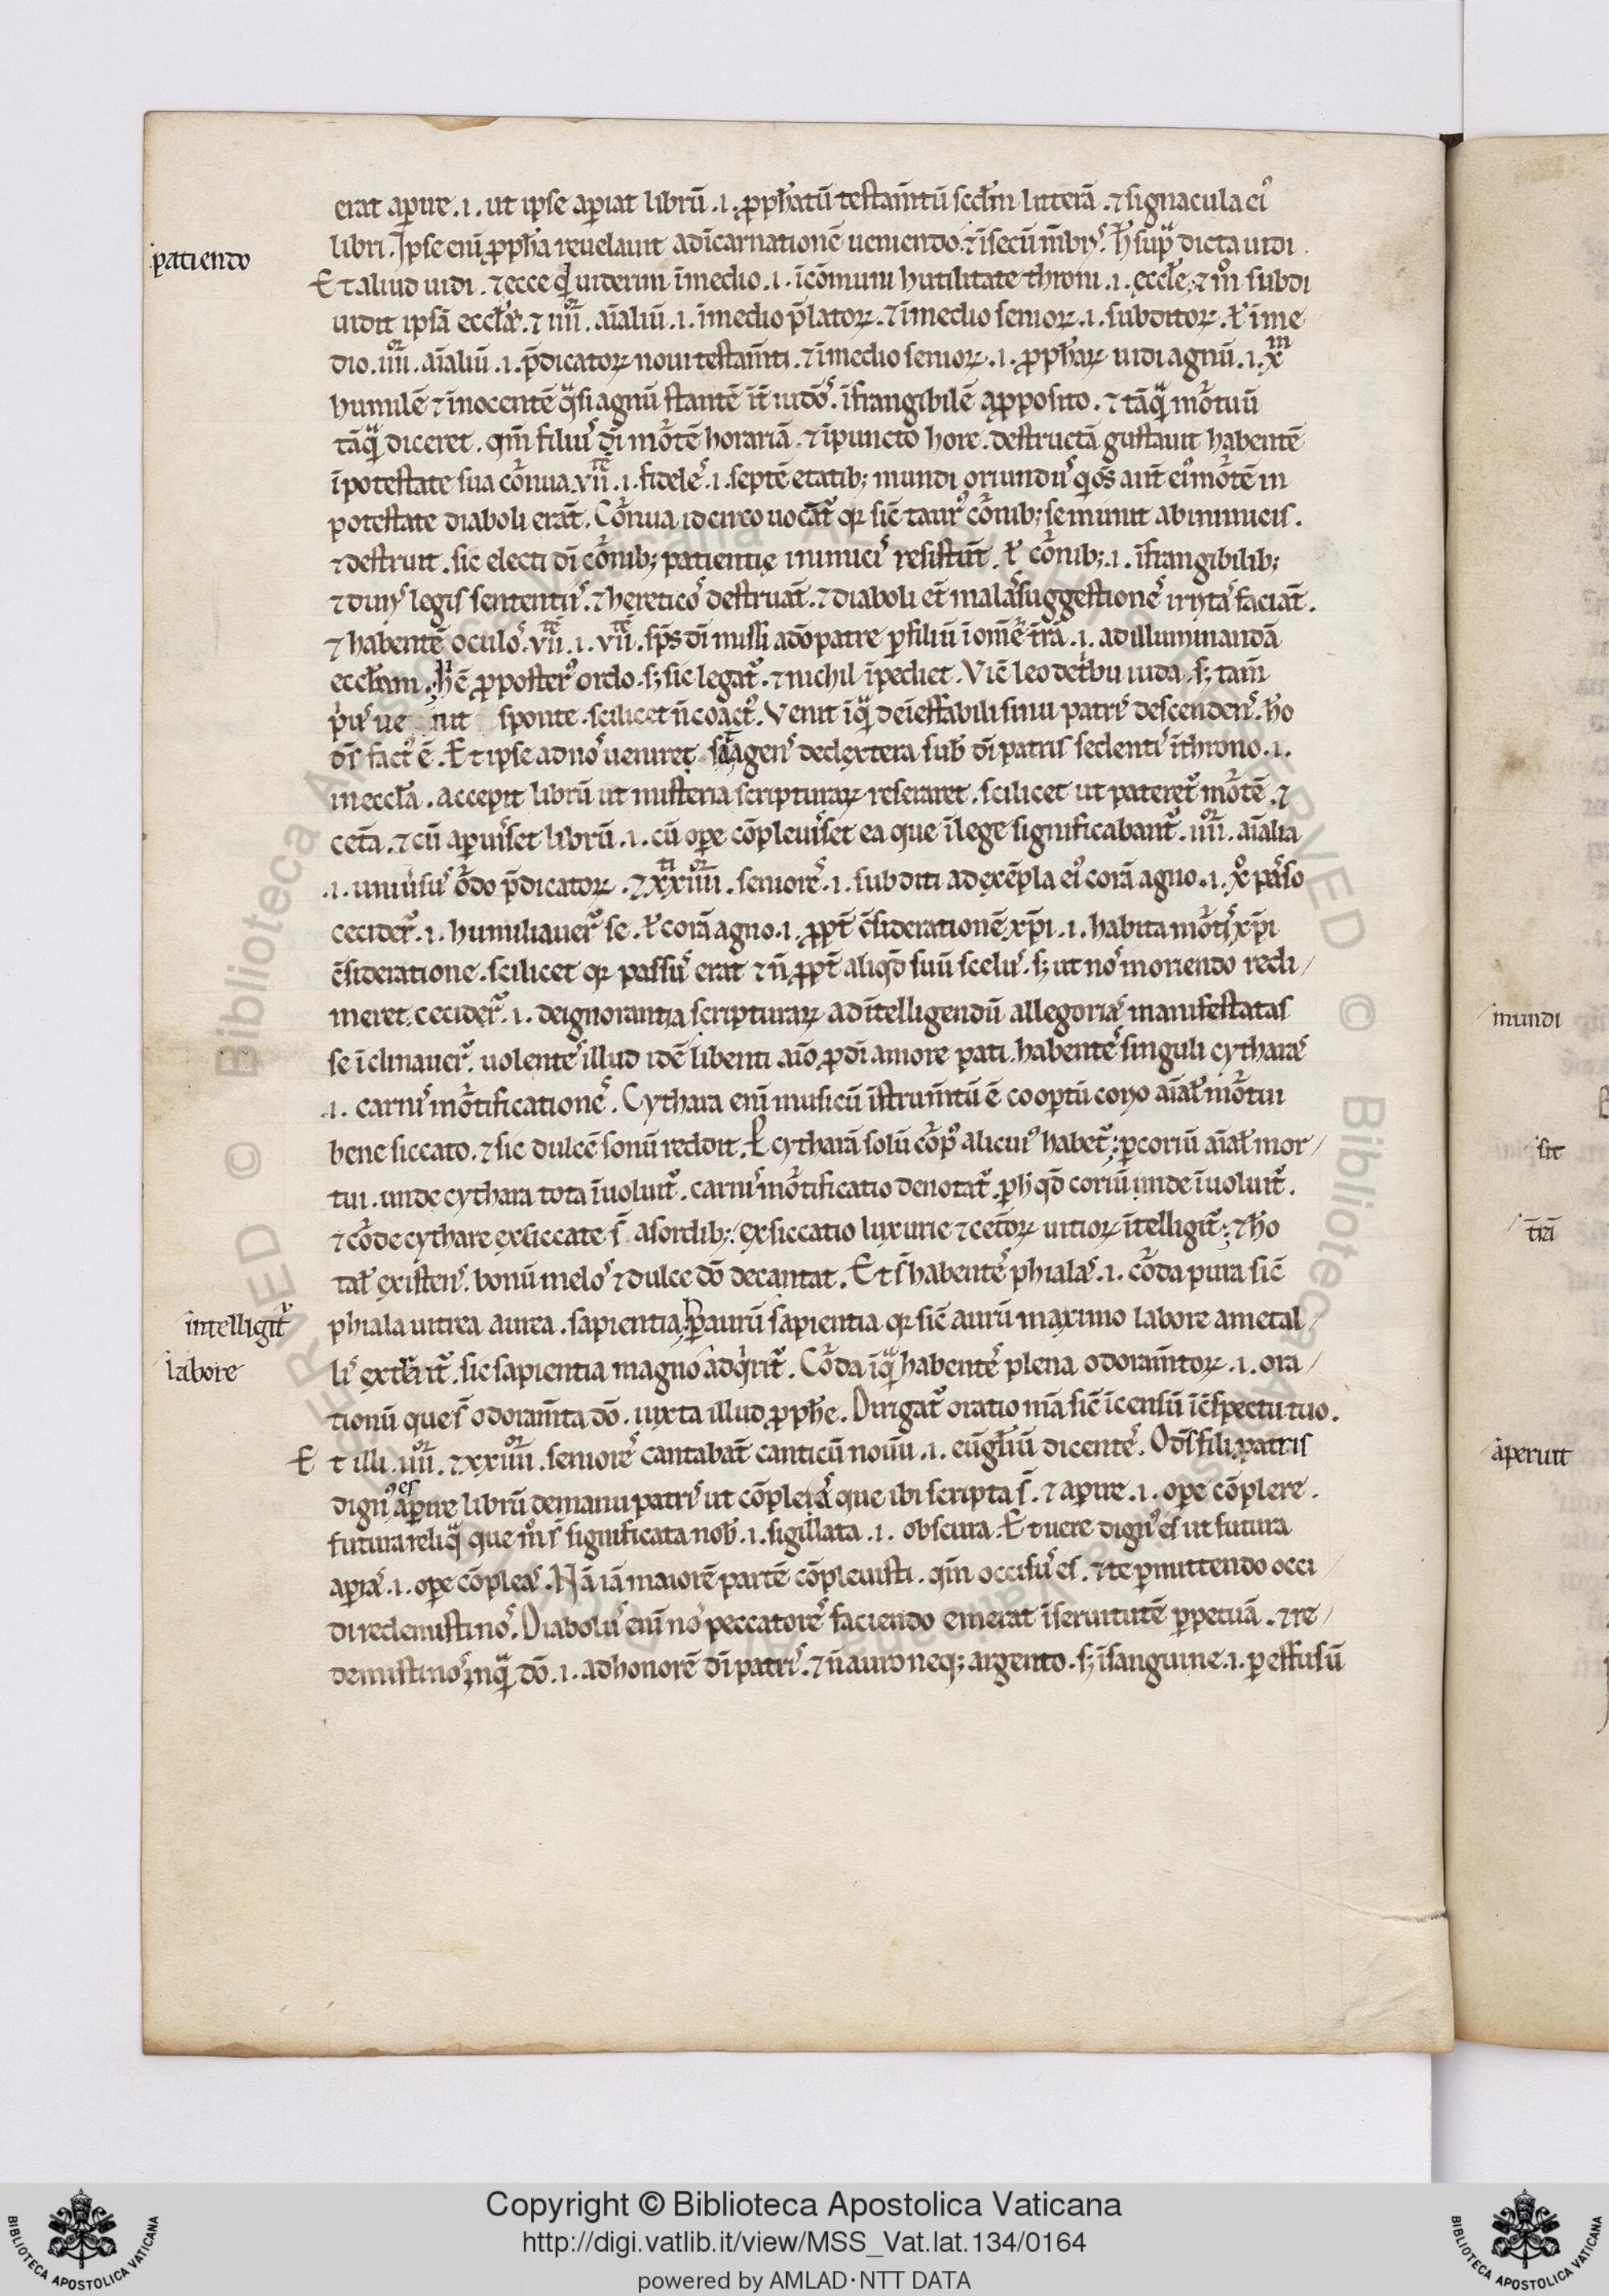 erat aꝑire .i. ut ipse aꝑiat librū .i. ꝓph̄atū testam̄tū scd̄m litterā . ⁊ signacula eiꝰ
libri . Ipse eni ꝓph̄ia reuelauit ad īcarnationē ueniendo . ⁊ ī se cū
patiendo
Et aliud uidi . ⁊ ecce uiderim ī medio .i. ī cōmuni hutilitate throni .i. eccl̄e
uidit ipsā eccl̄ā . ⁊ iiii . aīaliū .i. ī medio p̄latoꝝ . ⁊ ī medio senioꝝ .i. subditoꝝ . ł ī me
dio . iiii . aīaliū .i. p̄dicatoꝝ noui testam̄ti . ⁊ ī medio senioꝝ .i. ꝓph̄aꝝ uidi agnū .i. xm
humilē ⁊ īnocentē q̄si agnū stantē īfrangibilē ꝓposito . ⁊ tāq̄ mortuū
tāq̄ diceret . qm̄ filius dī mortē horariā . ⁊ ī puncto hore . destructā gustauit habentē
ī potestate sua cornua . vii . i . fideles .i. septē etatib; mundi oriundus q̄os ant̄ eiꝰ mortē in
potestate diaboli erāt . Cornua idcirco uocāt̄ qꝛ sic̄ taurꝰ cornib; se munit ab inimicis .
⁊ destruit . sic electi dī cornib; patientię inimicis resistūt . ł cornib; .i. īfrangibilib;
⁊ diuīs legis sententiis . ⁊ hereticos destruāt . ⁊ diaboli et̄ malas suggestiones irritas faciāt .
⁊ habentē oculos . vii . i . vii . sp̄s dī missi a dō patre ꝑ filiū ī omē t̄rā .i. ad illuminandā
eccl̄iam . ꝓposterꝰ ordo . s; sic legat̄ . ⁊ nichil īpediet . Vic̄ leo de tbu iuda . s; tam̄
ue nit sponte . scilicet n̄ coactꝰ . Venit īq̄ de ieffabili sinu patris descendens . ho
d̄s factꝰ ē . Et ipse ad nos ueniret agens de dextera sub dī patris sedentis ī throno .i.
in eccl̄ia . accepit librū ut misteria scripturaꝝ reseraret . scilicet ut pateret̄ mortē . ⁊
cet̄a . ⁊ cū aꝑuisset librū .i. cū oꝑe cōpleuisset ea que ī lege significabant̄ . iiii . aīalia
.i. uniusus ordo p̄dicatoꝝ . ⁊ xxiiii . seniores .i. subditi ad exēpla eiꝰ corā agno .i. xo passo
cecider̄ .i. humiliauer̄ se . ł corā agno .i. ꝓpt̄ c̄siderationē xp̄i .i. habita mortis xp̄i
c̄sideratione . scilicet qꝛ passus erat ⁊ n̄ ꝓpt̄ aliqd̄ suū scelus . s; ut nos moriendo redi/
meret . cecider̄ .i. de ignorantia scripturaꝝ ad ītelligendū allegorias manifestatas
se īclinauer̄ . uolentes illud idē libenti aīo ꝓ dī amore pati . habentes singuli cytharas
.i. carnis mortificationes . Cythara eni musicū īstrum̄tū ē cooꝑtū corio aīal̄ mortui
bene siccato . ⁊ sic dulcē sonū reddit . ł cytharā solū corpꝰ alicuiꝰ habet̄ : ꝑ coriū aīal̄ mor/
tui . unde cythara tota īuoluit̄ . carnis mortificatio denotat̄ . ꝑ h̄ qd̄ coriū unde īuoluit̄ .
⁊ corde cythare exsiccate s̄ a sordib; : exsiccatio luxurie ⁊ cetoꝝ uitioꝝ ītelligit̄ ; ⁊ ho
tal̄ existens . bonū melos ⁊ dulce dō decantat . Et s̄ habentes phialas .i. corda pura sic̄
intelligit̄
phiala uitrea aurea . sapientia ꝑ aurū sapientia qꝛ sic̄ aurū maximo labore a metal/
labore
lis extrait̄ . sic sapientia magno adq̄rit̄ . Corda īq̄ habentes plena odoram̄toꝝ .i. ora/
tionū que s̄ odoram̄ta dō . iuxta illud ꝓph̄e . Dirigat̄ oratio m̄a sic̄ īcensū ī c̄spectu tuo .
Et illi . iiii . ⁊ xxiiii . seniores cantabāt canticū nouū .i. eūgl̄iū dicentes . O d̄s fili patris
dignꝰ es aꝑire librū de manu patris ut cōpleas que ibi scripta s̄ . ⁊ aꝑire .i. oꝑe cōplere .
futura reliq̄ que m̊ s̄ significata nob̄ .i. sigillata .i. obscura . Et uere dignꝰ es ut futura
aꝑias .i. oꝑe cōpleas . Nā iā maiorē partē cōpleuisti . qm̄ occisus es . ⁊ te ꝑmittendo occi/
di redemisti nos . Diabolus eni nos peccatores faciendo emerat ī seruitutē ꝑpetuā . ⁊ re/
demisti nos inq̄ dō .i. ad honorē dī patris . ⁊ n̄ auro neq; argento . s; ī sanguine .i. ꝑ effusū
mundi
sit
t̄ri
aperuit
Copyright © Biblioteca Apostolica Vaticana
http://digi.vatlib.it/view/MSS_Vat.lat.134/0164
powered by AMLAD·NTT DATA
BIBLIOTECA APOSTOLICA VATICANA
BIBLIOTECA APOSTOLICA VATICANA